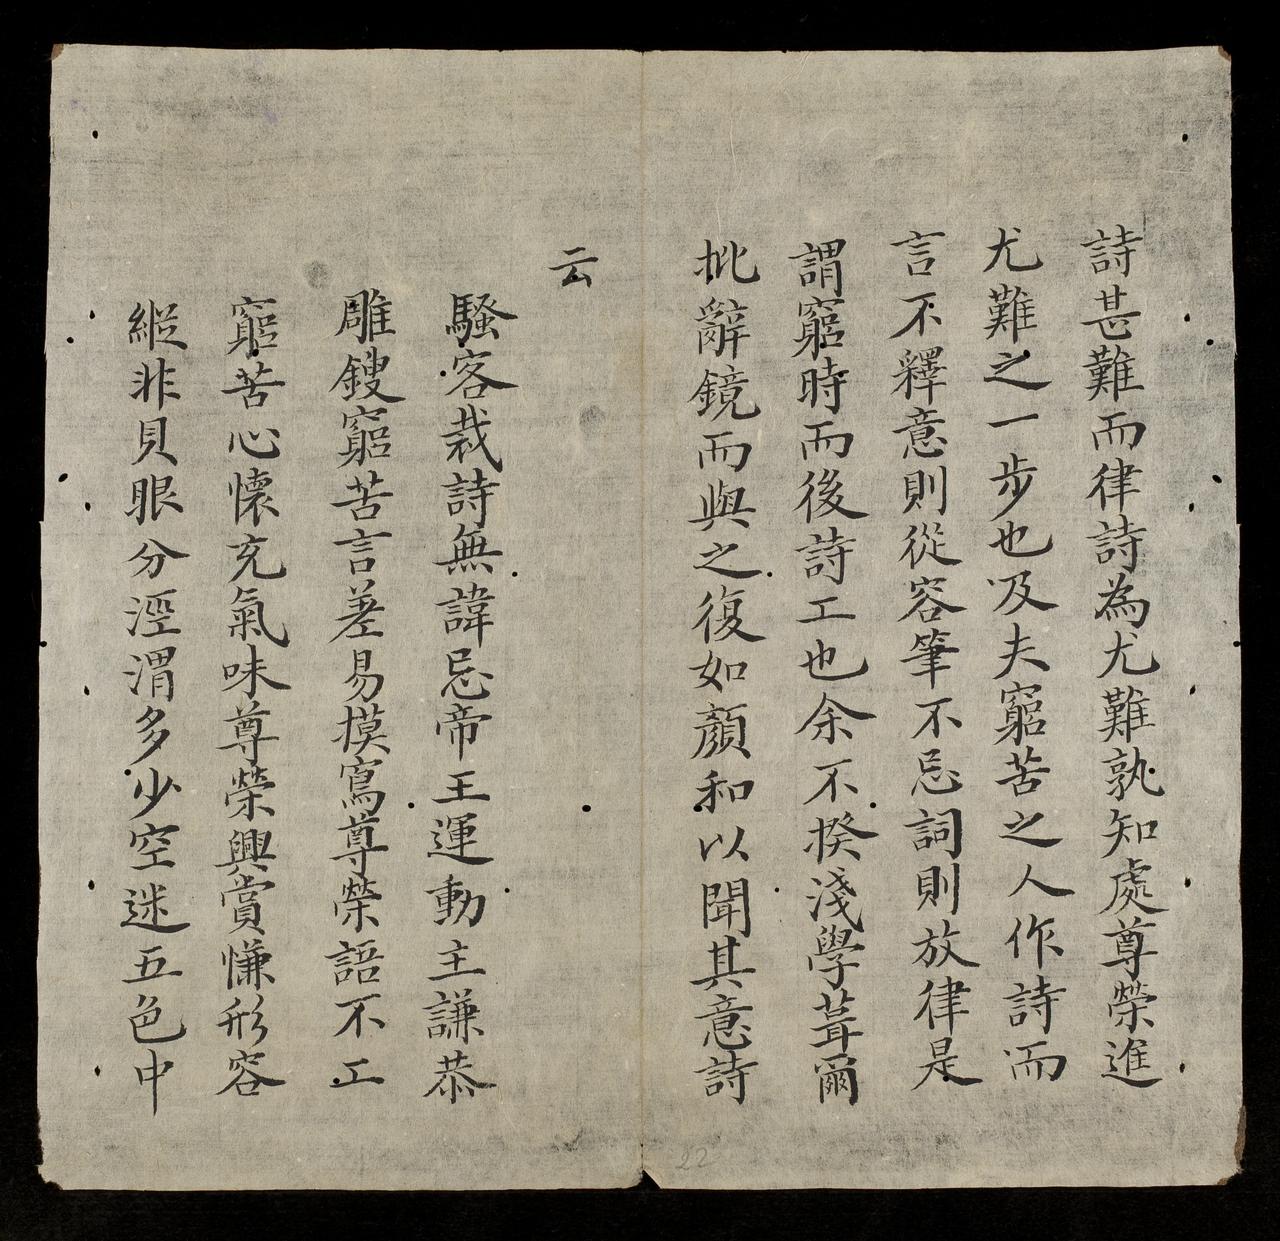 詩甚難而律詩為尤難孰知處尊榮進
尤難之一步也及夫窮苦之人作詩而
言不釋意則從容筆不忌詞則放律是
謂窮時而後詩工也余不揆淺學葺爾
批辭鏡而與之復如顏和以聞其意詩
云
騷客裁詩無諱忌帝王運動主謙恭
雕鎪窮苦言差易摸寫尊榮語不工
窮苦心懷充氣味尊榮興賞慊形容
縱非貝眼分涇渭多少空迷五色中
22